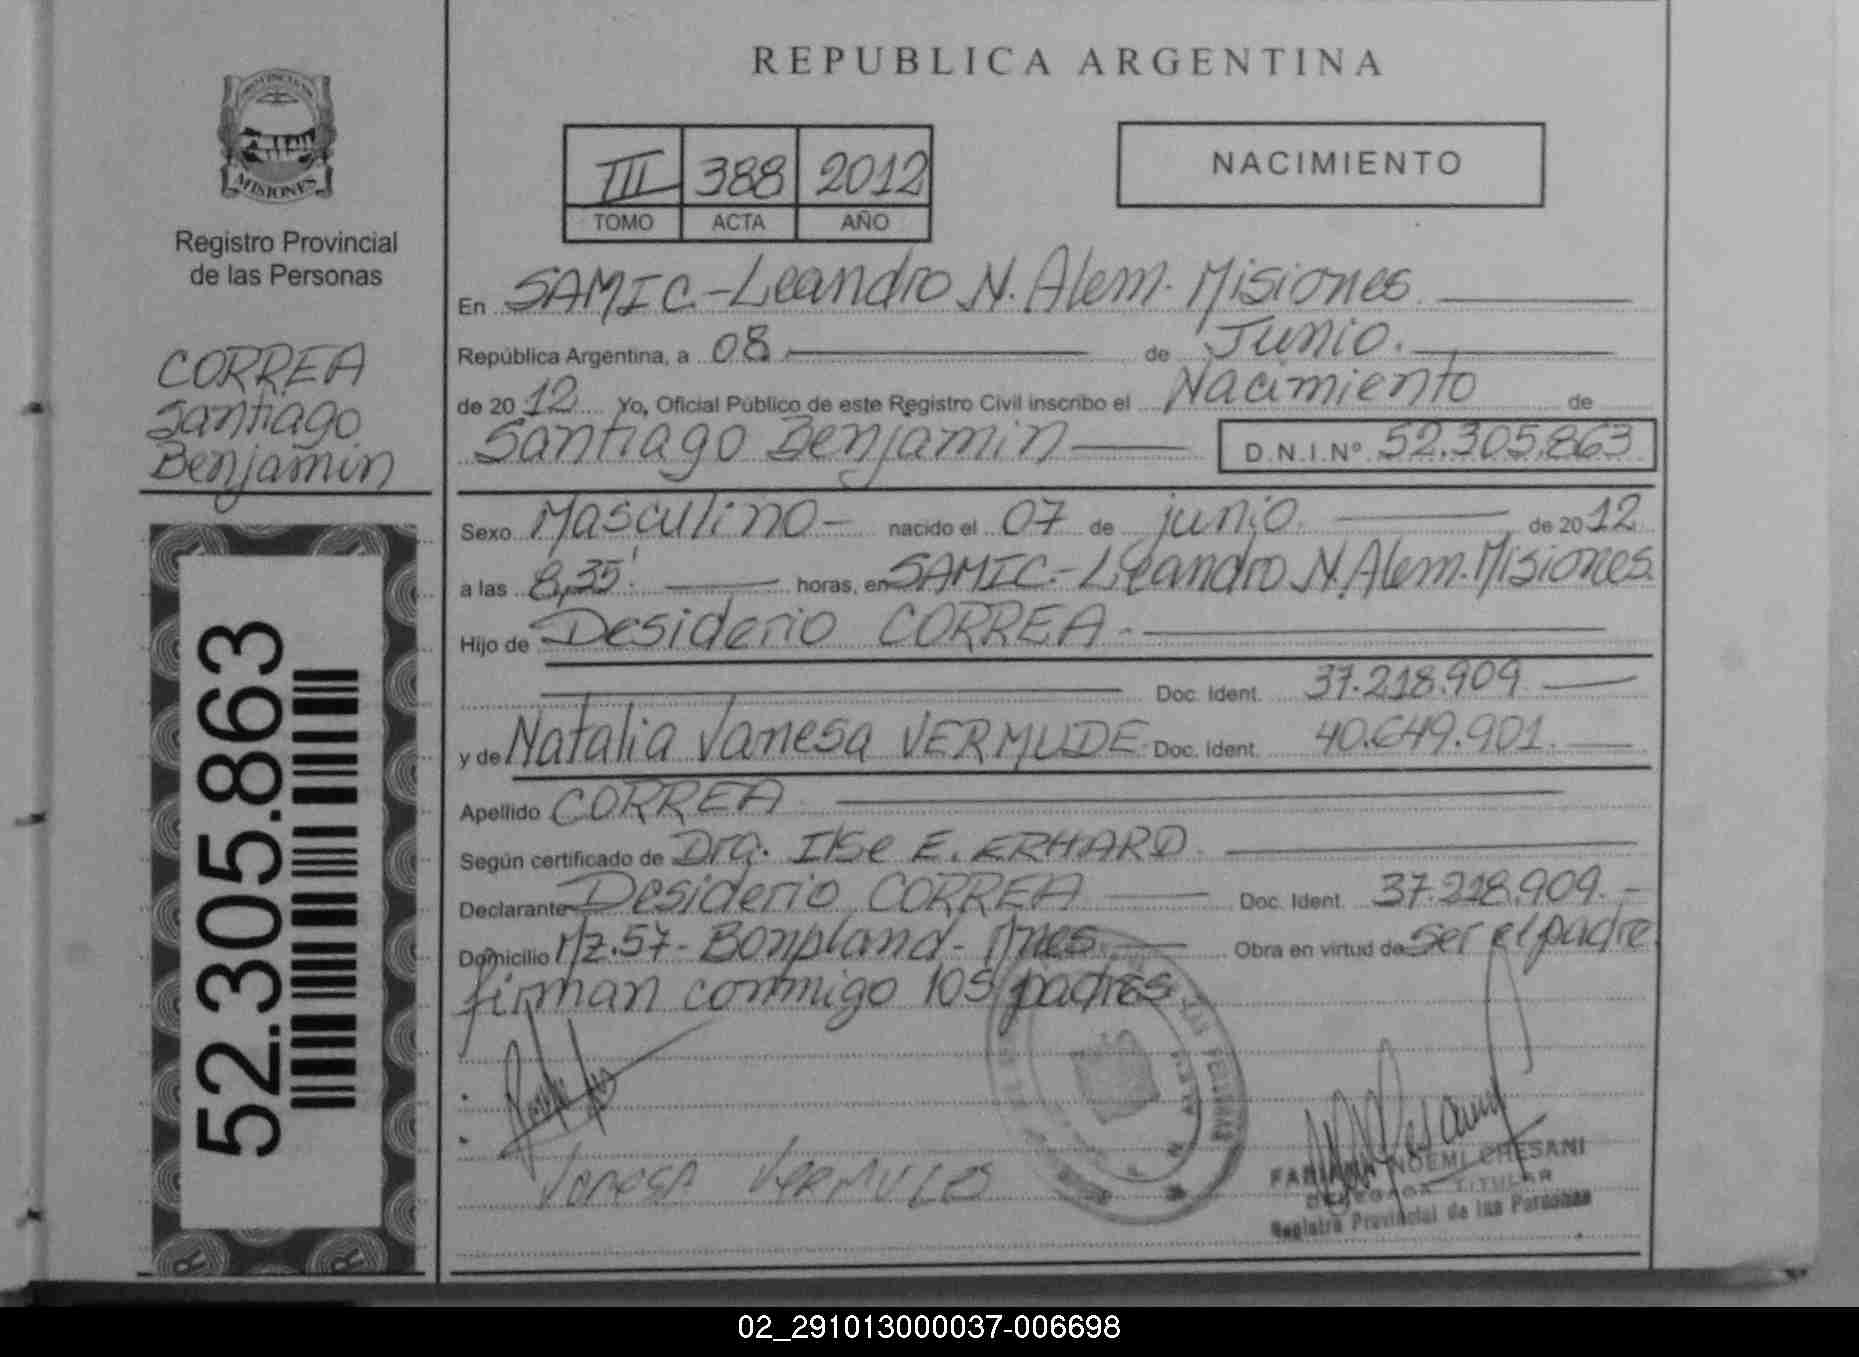 REPUBLICA ARGENTINA
MISIONES
Registro Provincial
de las Personas
CORREA
Santiago
Benjamin
52.305.863
III 388 2012
TOMO ACTA AÑO
NACIMIENTO
En SAMIC.-Leandro N. Alem. Misiones
República Argentina, a 08 de Junio.
de 20 12 Yo, Oficial Público de este Registro Civil inscribo el Nacimiento de
Santiago Benjamin D.N.I.Nº 52.305.863
Sexo Masculino- nacido el 07 de junio. de 20 12
a las 8,35'. horas, en SAMIC.-Leandro N. Alem. Misiones.
Hijo de Desiderio CORREA.-
Doc. Ident. 37.218.909
y de Natalia Vanesa VERMUDE Doc. Ident. 40.649.901.
Apellido CORREA
Según certificado de Dra. Ilse E. ERHARD
Declarante Desiderio CORREA Doc. Ident. 37.218.909.-
Domicilio Mz.57- Bonpland- Mnes. Obra en virtud de ser el padre
firman conmigo los padres
Vanesa
FABIANA NOEMI CHESANI
DELEGADA TITULAR
Registro Provincial de las Personas
02_291013000037-006698